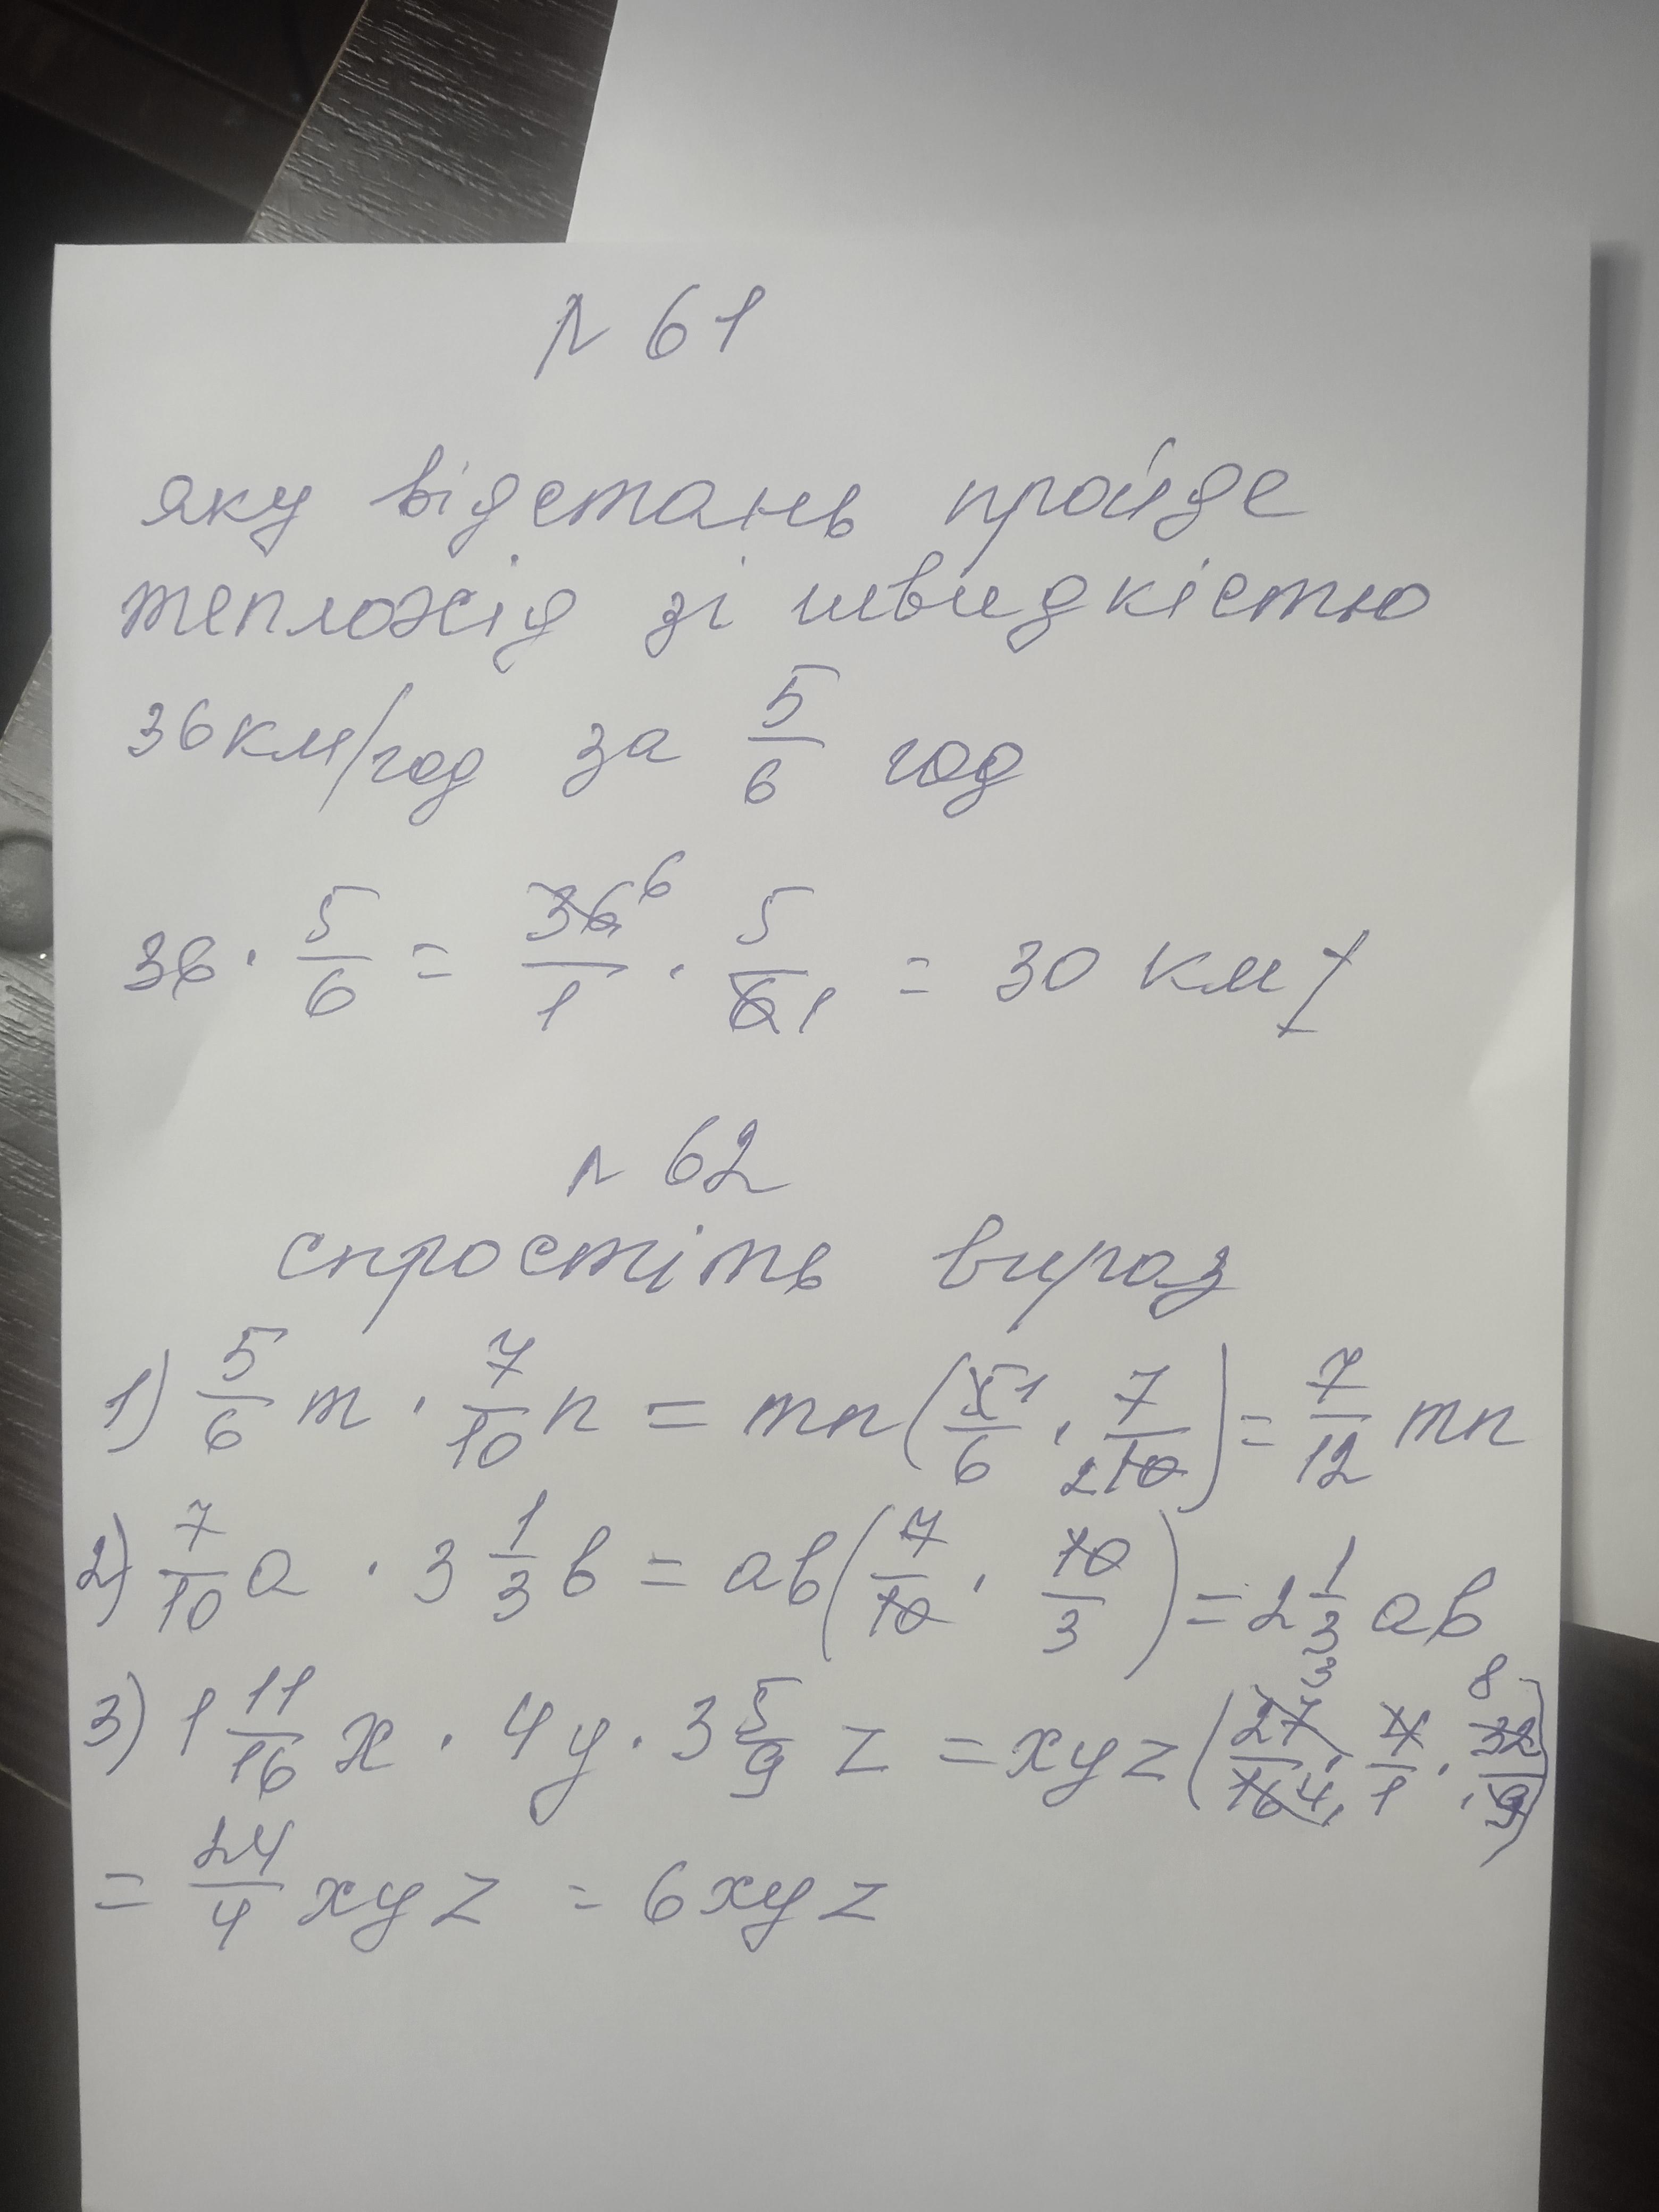 № 61
яку відстань пройде
теплохід зі швидкістю
36 км/год за 5/6 год
36 · 5/6 = 36 6/1 · 5/6 1 = 30 км
№ 62
спростіть вираз
1) 5/6 m · 7/10 n = mn (5 1/6 · 7/2 10) = 7/12 mn
2) 7/10 a · 3 1/3 b = ab (7/10 · 10/3) = 2 1/3 ab
3) 1 11/16 x · 4y · 3 5/9 z = xyz (27 3/16 4 · 4/1 · 32 8/9 1)
= 24/4 xyz = 6xyz